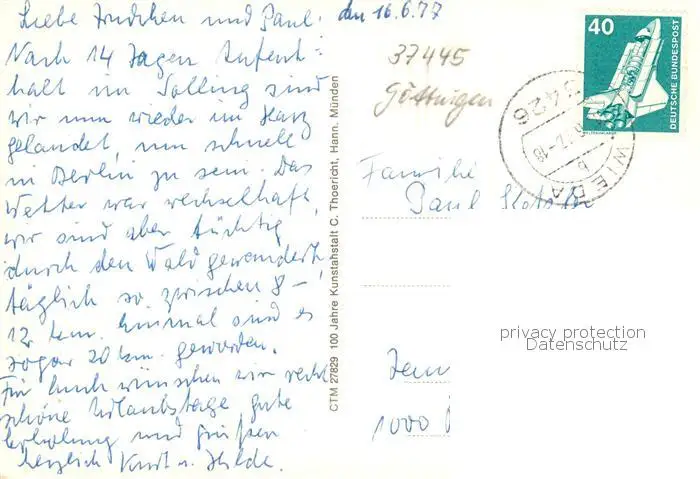 Liebe Trudchen und Paul. den 16.6.77
Nach 14 Tagen Aufent=
halt im Solling sind
wir nun wieder im Harz
gelandet, um schnell
in Berlin zu sein. Das
Wetter war wechselhaft,
wir sind aber tüchtig
durch den Wald gewandert,
täglich so zwischen 8 –
12 km. Einmal sind es
sogar 20 km. geworden.
Für Euch wünschen wir recht
schöne Urlaubstage gute
Erholung und grüßen
herzlich Kurt u. Hilde.
CTM 27829 100 Jahre Kunstanstalt C. Thoericht, Hann. Münden
37445
Göttingen
3426
WIEDA
b
40
DEUTSCHE BUNDESPOST
WELTRAUMLABOR
Familie
Paul
privacy protection
Datenschutz
1000